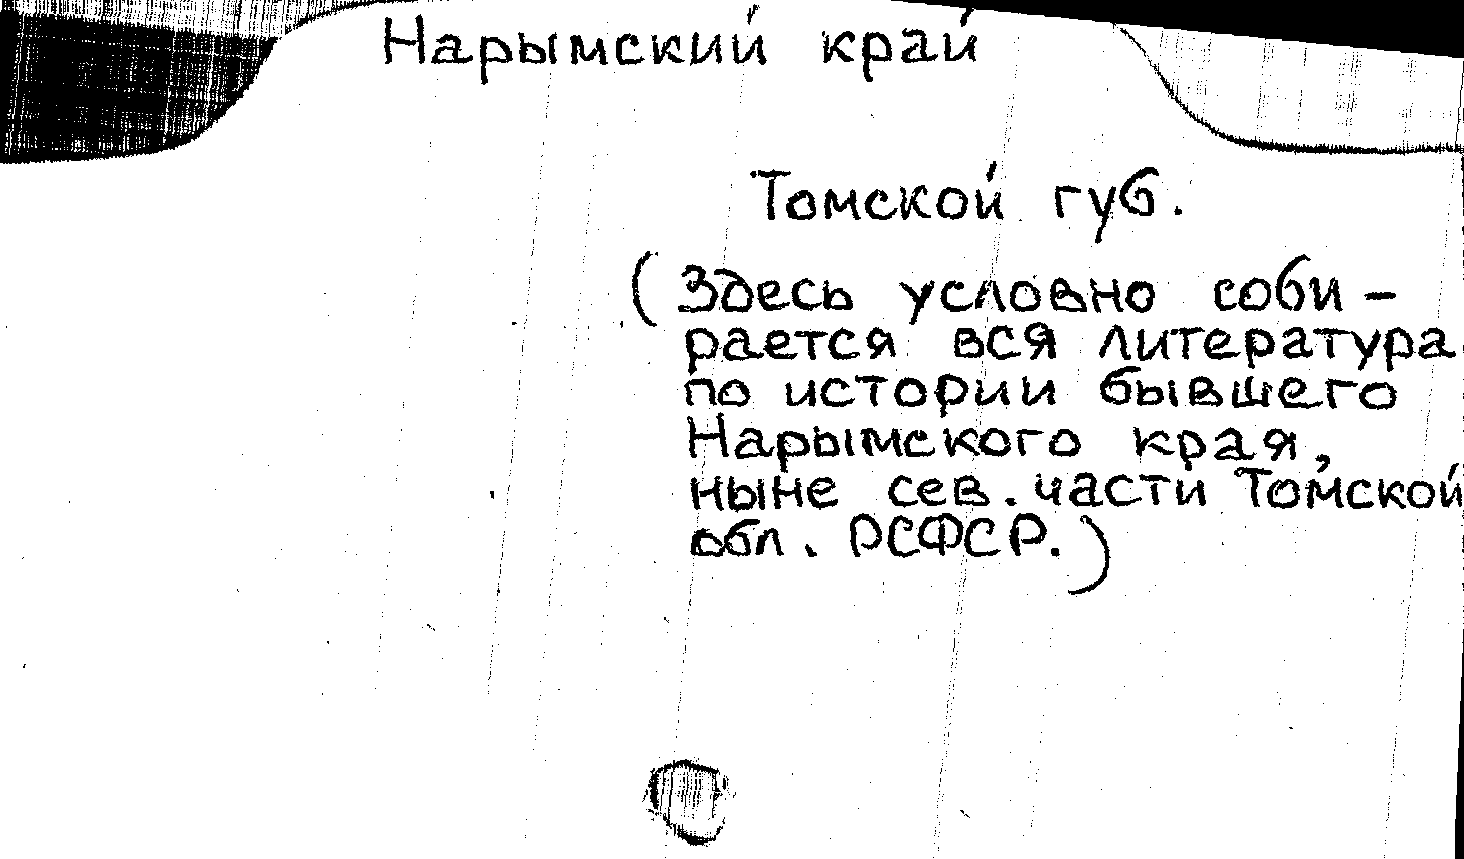 Нарымский край
Томской губ.
(Здесь условно соби-
рается вся литература
по истории бывшего
Нарымского края,
ныне сев. части Томской
обл. РСФСР.)